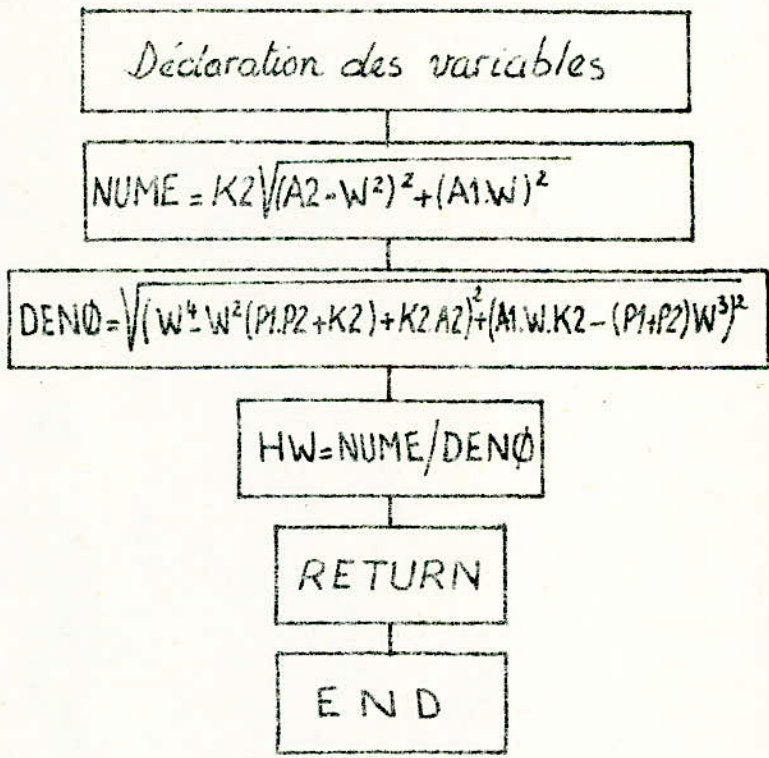 Déclaration des variables
NUME = K2√(A2-W²)²+(A1.W)²
DENØ=√(W⁴-W²(P1.P2+K2)+K2.A2)²+(A1.W.K2-(P1+P2)W³)²
HW=NUME/DENØ
RETURN
END